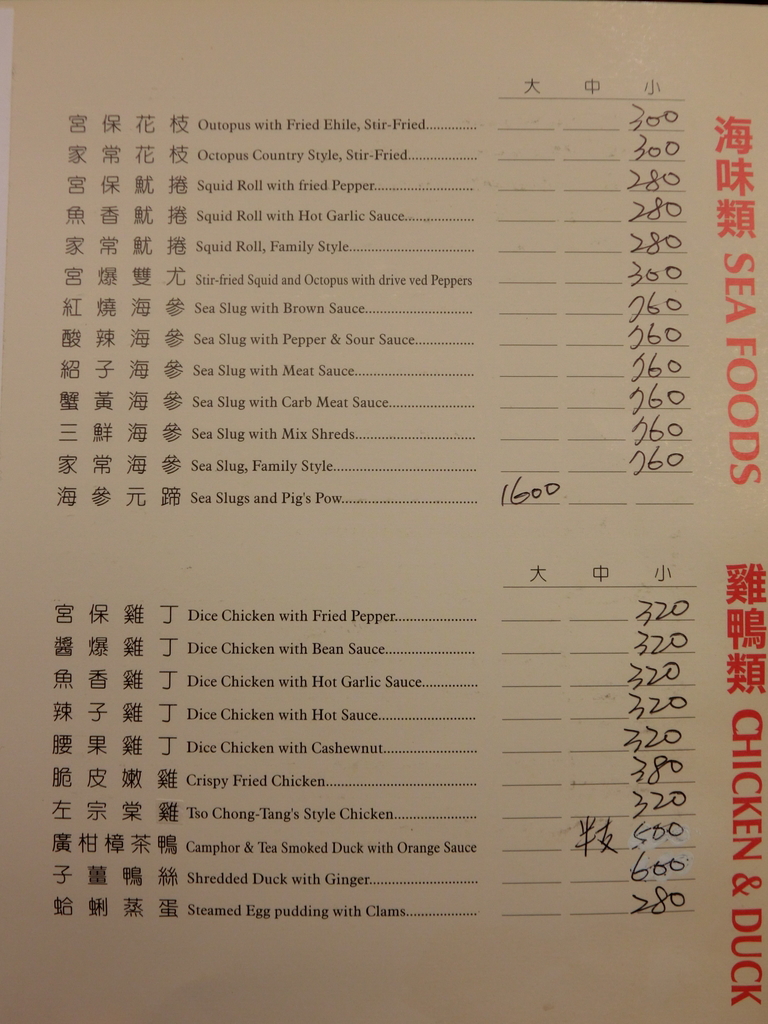 大 中 小
宮保花枝 Outopus with Fried Ehile, Stir-Fried.............. 300
家常花枝 Octopus Country Style, Stir-Fried................... 300
宮保魷捲 Squid Roll with fried Pepper............................ 280
魚香魷捲 Squid Roll with Hot Garlic Sauce................... 280
家常魷捲 Squid Roll, Family Style.................................. 280
宮爆雙尤 Stir-fried Squid and Octopus with drive ved Peppers 300
紅燒海參 Sea Slug with Brown Sauce............................. 760
酸辣海參 Sea Slug with Pepper & Sour Sauce................ 760
紹子海參 Sea Slug with Meat Sauce................................ 760
蟹黃海參 Sea Slug with Carb Meat Sauce....................... 760
三鮮海參 Sea Slug with Mix Shreds................................ 760
家常海參 Sea Slug, Family Style...................................... 760
海參元蹄 Sea Slugs and Pig's Pow................................... 1600
海味類 SEA FOODS
大 中 小
宮保雞丁 Dice Chicken with Fried Pepper...................... 320
醬爆雞丁 Dice Chicken with Bean Sauce........................ 320
魚香雞丁 Dice Chicken with Hot Garlic Sauce............... 320
辣子雞丁 Dice Chicken with Hot Sauce.......................... 320
腰果雞丁 Dice Chicken with Cashewnut......................... 320
脆皮嫩雞 Crispy Fried Chicken........................................ 380
左宗棠雞 Tso Chong-Tang's Style Chicken...................... 320
廣柑樟茶鴨 Camphor & Tea Smoked Duck with Orange Sauce 500
子薑鴨絲 Shredded Duck with Ginger............................ 600
蛤蜊蒸蛋 Steamed Egg pudding with Clams................... 280
雞鴨類 CHICKEN & DUCK